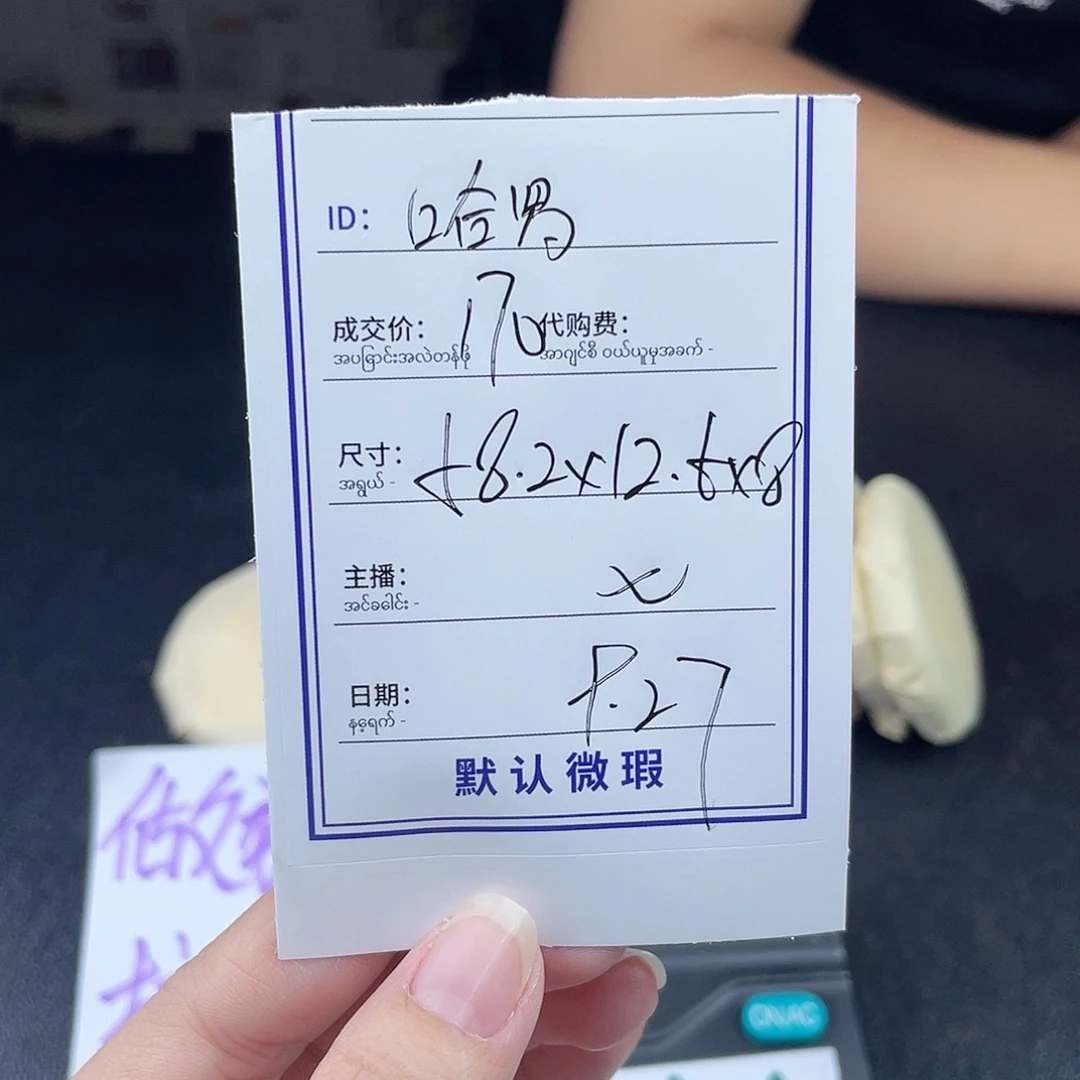 ID: 哈男
成交价: 170 代购费:
အပြောင်းအလဲတန်ဖို အာဂျင်စီ ဝယ်ယူမှုအခက် -
尺寸: 58.2x12.6x8
အရွယ် -
主播: x
အင်ခခေါင်း -
日期: 9.27
နေ့ရက် -
默认微瑕
做
ON/AC